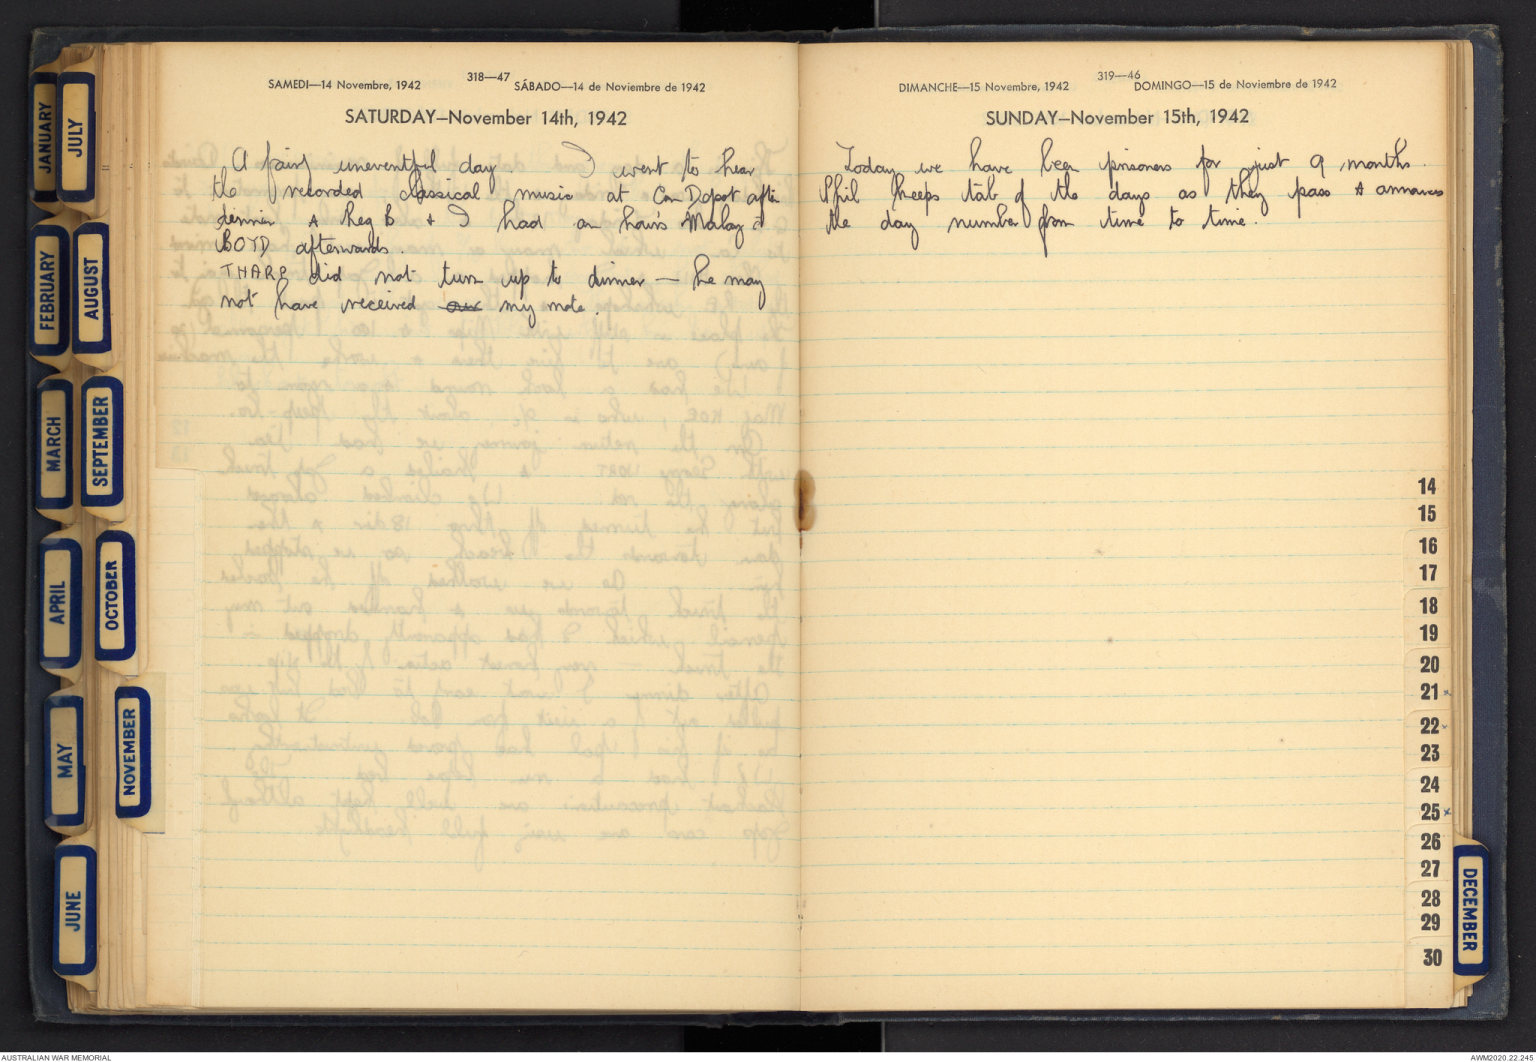 JANUARY
JULY
FEBRUARY
AUGUST
MARCH
SEPTEMBER
APRIL
OCTOBER
MAY
NOVEMBER
JUNE
318—47
SAMEDI—14 Novembre, 1942 SÁBADO—14 de Noviembre de 1942
SATURDAY—November 14th, 1942
A fairly uneventful day. I went to hear
the recorded classical music at Con Depot after
dinner & Reg B & I had an hour's Malay
BOYD afterwards.
THARP did not turn up to dinner — he may
not have received our my note.
319—46
DIMANCHE—15 Novembre, 1942 DOMINGO—15 de Noviembre de 1942
SUNDAY—November 15th, 1942
Today we have been prisoners for just 9 months.
Phil keeps tab of the days as they pass & announces
the day number from time to time.
14
15
16
17
18
19
20
21 x
22 x
23
24
25 x
26
27
28
29
30
DECEMBER
AUSTRALIAN WAR MEMORIAL
AWM2020.22.245